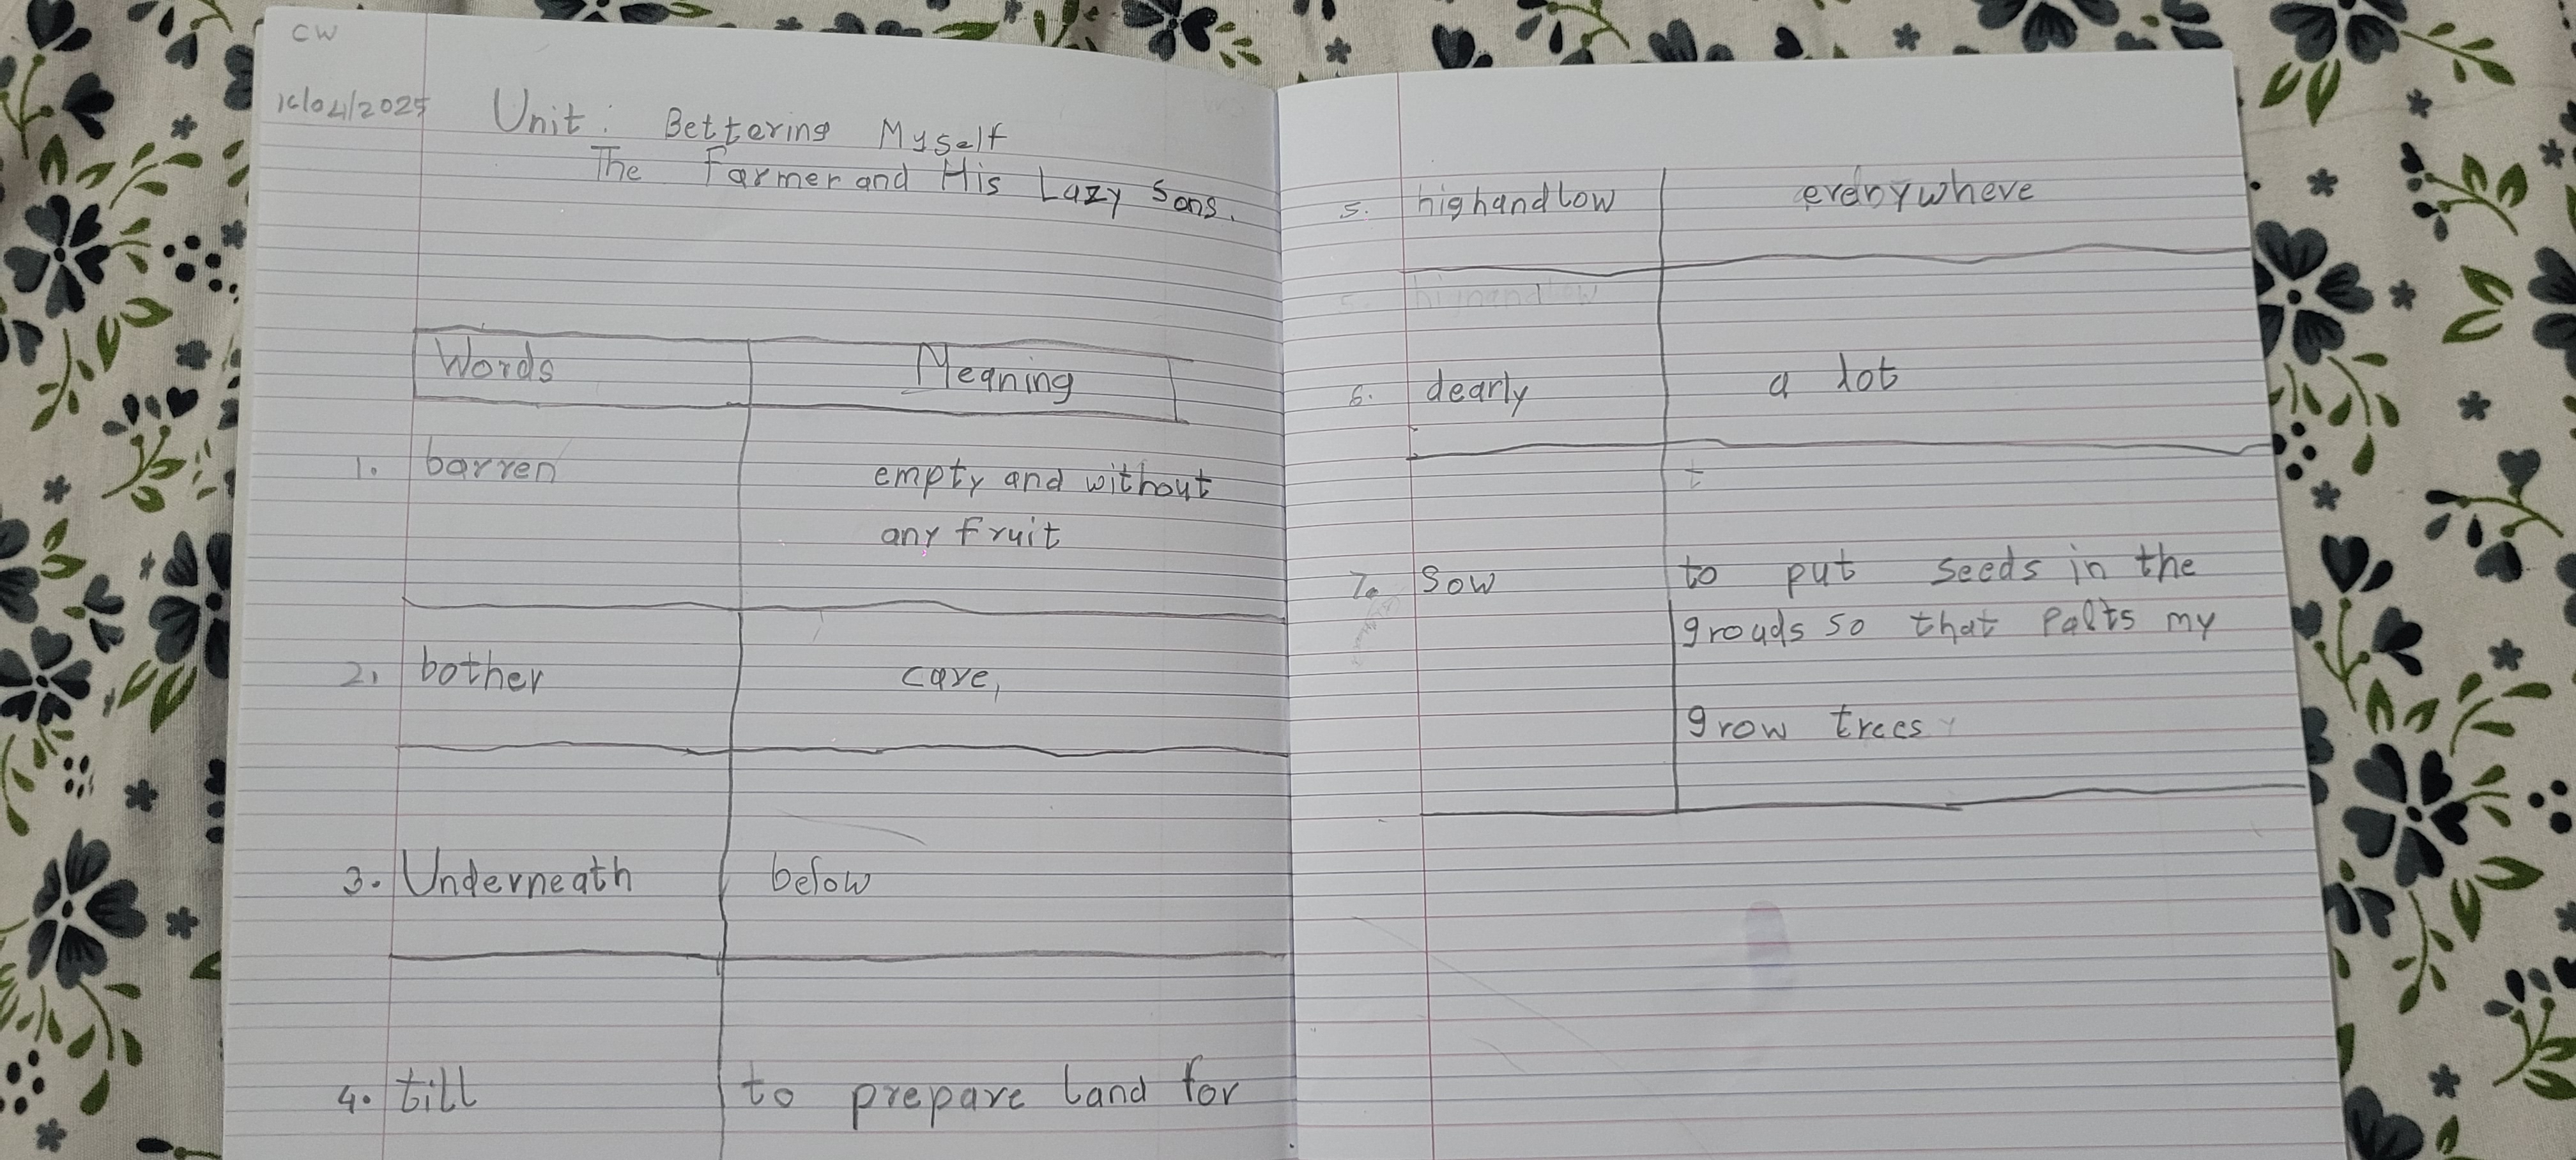 CW
16/04/2025
Unit: Bettering Myself
The Farmer and His Lazy Sons.
Words Meaning
1. barren empty and without
any fruit
2. bother care,
3. Underneath below
4. till to prepare land for
5. highandlow everywhere
5. highandlow
6. dearly a lot
t
7. Sow to put seeds in the
grouds so that Palts my
grow trees